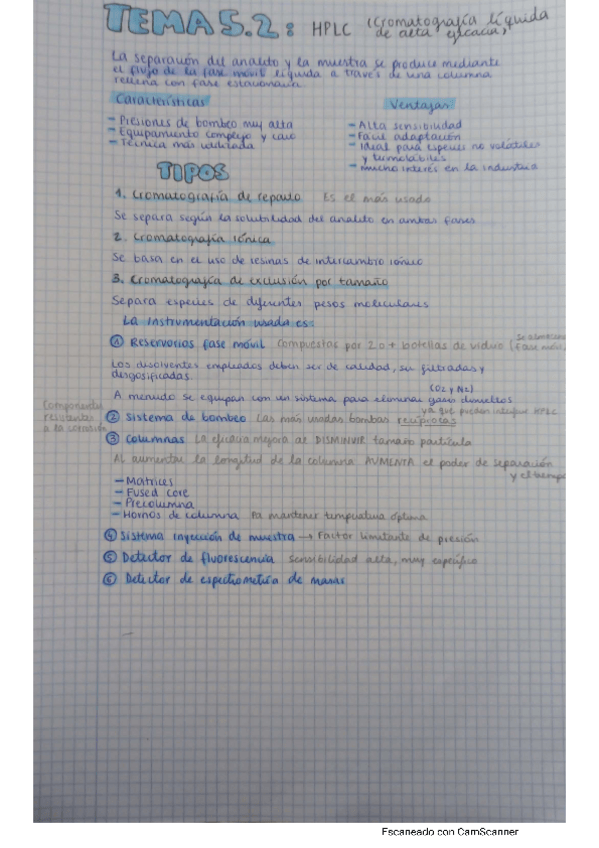 TEMA 5.2: HPLC (Cromatografía líquida
de alta eficacia)
La separación del analito y la muestra se produce mediante
el flujo de la fase móvil líquida a través de una columna
rellena con fase estacionaria.
Características
- Presiones de bombeo muy alta
- Equipamiento complejo y caro
- Técnica más utilizada
Ventajas
- Alta sensibilidad
- Fácil adaptación
- Ideal para especies no volátiles
y termolábiles
- mucho interés en la industria
TIPOS
1. Cromatografía de reparto Es el más usado
Se separa según la solubilidad del analito en ambas fases
2. Cromatografía Iónica
Se basa en el uso de resinas de intercambio iónico
3. Cromatografía de exclusión por tamaño
Separa especies de diferentes pesos moleculares
La instrumentación usada es:
① Reservorios fase móvil Compuestas por 2 o + botellas de vidrio (Se almacena fase móvil
Los disolventes empleados deben ser de calidad, ser filtradas y
desgosificadas.
A menudo se equipan con un sistema para eliminar gases disueltos (O2 y N2)
ya que pueden interferir HPLC
Componentes
resistentes
a la corrosión
② Sistema de bombeo Las más usadas bombas recíprocas
③ Columnas La eficacia mejora al DISMINUIR tamaño partícula
Al aumentar la longitud de la columna AUMENTA el poder de separación
y el tiempo
- Matrices
- Fused core
- Precolumna
- Hornos de columna Pa mantener temperatura óptima
④ Sistema inyección de muestra → Factor limitante de presión
⑤ Detector de fluorescencia sensibilidad alta, muy específico
⑥ Detector de espectrometría de masas
Escaneado con CamScanner